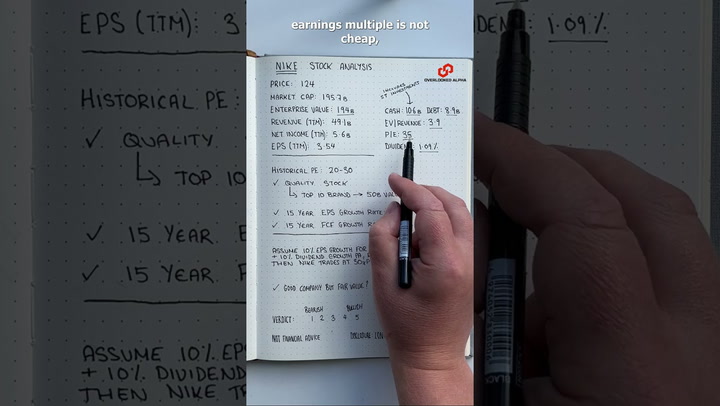 earnings multiple is not
cheap,
NIKE STOCK ANALYSIS
OVERLOOKED ALPHA
PRICE: 124
MARKET CAP: 195.7B
INCLUDES
ST INVESTMENTS
ENTERPRISE VALUE: 194B
CASH: 10.6B DEBT: 8.9B
REVENUE (TTM): 49.1B
EV/REVENUE: 3.9
NET INCOME (TTM): 5.6B
P/E: 35
EPS (TTM): 3.54
DIVIDEND 1.09%
HISTORICAL PE: 20-50
✓ QUALITY STOCK
↳ TOP 10 BRAND → 50B
✓ 15 YEAR EPS GROWTH
✓ 15 YEAR FCF GROWTH
ASSUME 10% EPS GROWTH FOR
+ 10% DIVIDEND GROWTH PA,
THEN NIKE TRADES AT
✓ GOOD COMPANY BUT FAIR VALUE?
BEARISH BULLISH
VERDICT: 1 2 3 4 5
NOT FINANCIAL ADVICE
EPS (TTM): 3
1.09%
HISTORICAL PE:
✓ QUALITY
↳ TOP 10
✓ 15 YEAR E
✓ 15 YEAR
ASSUME 10% EP
+ 10% DIVIDEND
THEN NIKE TR
BLACK